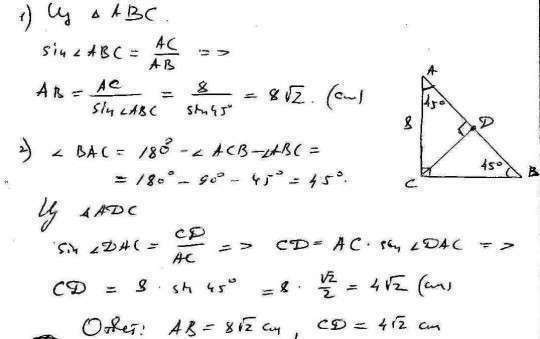 1) Из △ ABC.
sin ∠ABC = AC/AB =>
AB = AC/sin∠ABC = 8/sin45° = 8√2. (см)
2) ∠ BAC = 180° - ∠ ACB - ∠ABC =
= 180° - 90° - 45° = 45°.
Из △ADC
sin ∠DAC = CD/AC => CD = AC · sin ∠DAC =>
CD = 8 · sin 45° = 8 · √2/2 = 4√2 (см)
Ответ: AB = 8√2 см, CD = 4√2 см
A
45°
8
D
45°
C
B